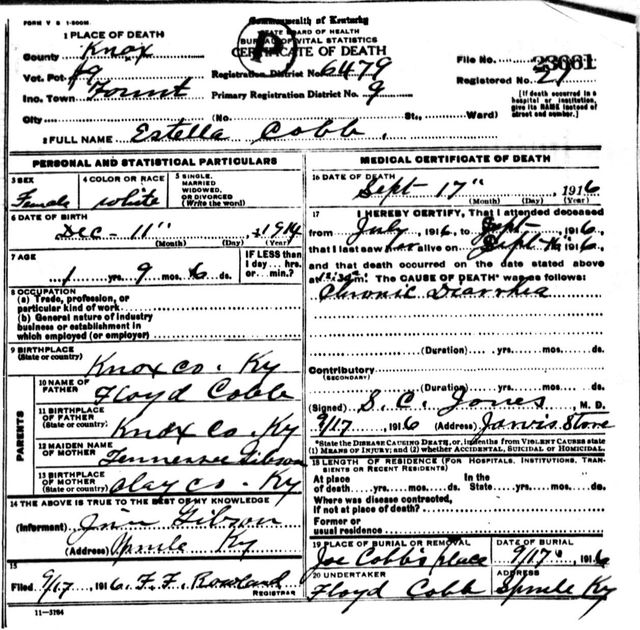 FORM V S 1-500M.
Commonwealth of Kentucky
STATE BOARD OF HEALTH
BUREAU OF VITAL STATISTICS
CERTIFICATE OF DEATH
P
1 PLACE OF DEATH
County Knox
Vot. Pct. 19
Inc. Town Fount
City (No. St., Ward)
Registration District No. 6479
Primary Registration District No. 9
File No. 23061
Registered No. 27
[If death occurred in a
hospital or institution,
give its NAME instead of
street and number.]
2 FULL NAME Estella Cobb.
PERSONAL AND STATISTICAL PARTICULARS
3 SEX
Female
4 COLOR OR RACE
White
5 SINGLE,
MARRIED
WIDOWED,
OR DIVORCED
(Write the word)
6 DATE OF BIRTH
Dec - 11" 1914
(Month) (Day) (Year)
7 AGE
1 yrs. 9 mos. 6 ds.
IF LESS than
1 day... hrs.
or... min.?
8 OCCUPATION
(a) Trade, profession, or
particular kind of work
(b) General nature of industry
business or establishment in
which employed (or employer)
9 BIRTHPLACE
(State or country)
Knox co. Ky
PARENTS
10 NAME OF
FATHER
Floyd Cobb
11 BIRTHPLACE
OF FATHER
(State or country)
Knox Co. Ky
12 MAIDEN NAME
OF MOTHER
Tennessee Gibson
13 BIRTHPLACE
OF MOTHER
(State or country)
Clay co - Ky
14 THE ABOVE IS TRUE TO THE BEST OF MY KNOWLEDGE
(Informant) Jim Gibson
(Address) Sprule Ky
15
Filed 9/17, 1916. F. F. Rowland
REGISTRAR
11-3184
MEDICAL CERTIFICATE OF DEATH
16 DATE OF DEATH
Sept - 17" , 1916
(Month) (Day) (Year)
17 I HEREBY CERTIFY, That I attended deceased
from July, 1916, to Sept, 1916,
that I last saw her alive on Sept-16 1916,
and that death occurred on the date stated above
at m. The CAUSE OF DEATH* was as follows:
Chronic Diarrhea
(Duration) yrs. mos. ds.
Contributory
(SECONDARY)
(Duration) yrs. mos. ds.
(Signed) S. C. Jones, M. D.
9/17, 1916 (Address) Jarvis Store
*State the DISEASE CAUSING DEATH, or, in deaths from VIOLENT CAUSES state
(1) MEANS OF INJURY; and (2) whether ACCIDENTAL, SUICIDAL or HOMICIDAL.
18 LENGTH OF RESIDENCE (FOR HOSPITALS, INSTITUTIONS, TRANSIENTS OR RECENT RESIDENTS)
At place
of death yrs. mos. ds.
In the
State yrs. mos. ds.
Where was disease contracted,
if not at place of death?
Former or
usual residence
19 PLACE OF BURIAL OR REMOVAL
Joe Cobb's place
DATE OF BURIAL
9/17", 1916
20 UNDERTAKER
Floyd Cobb
ADDRESS
Sprule Ky